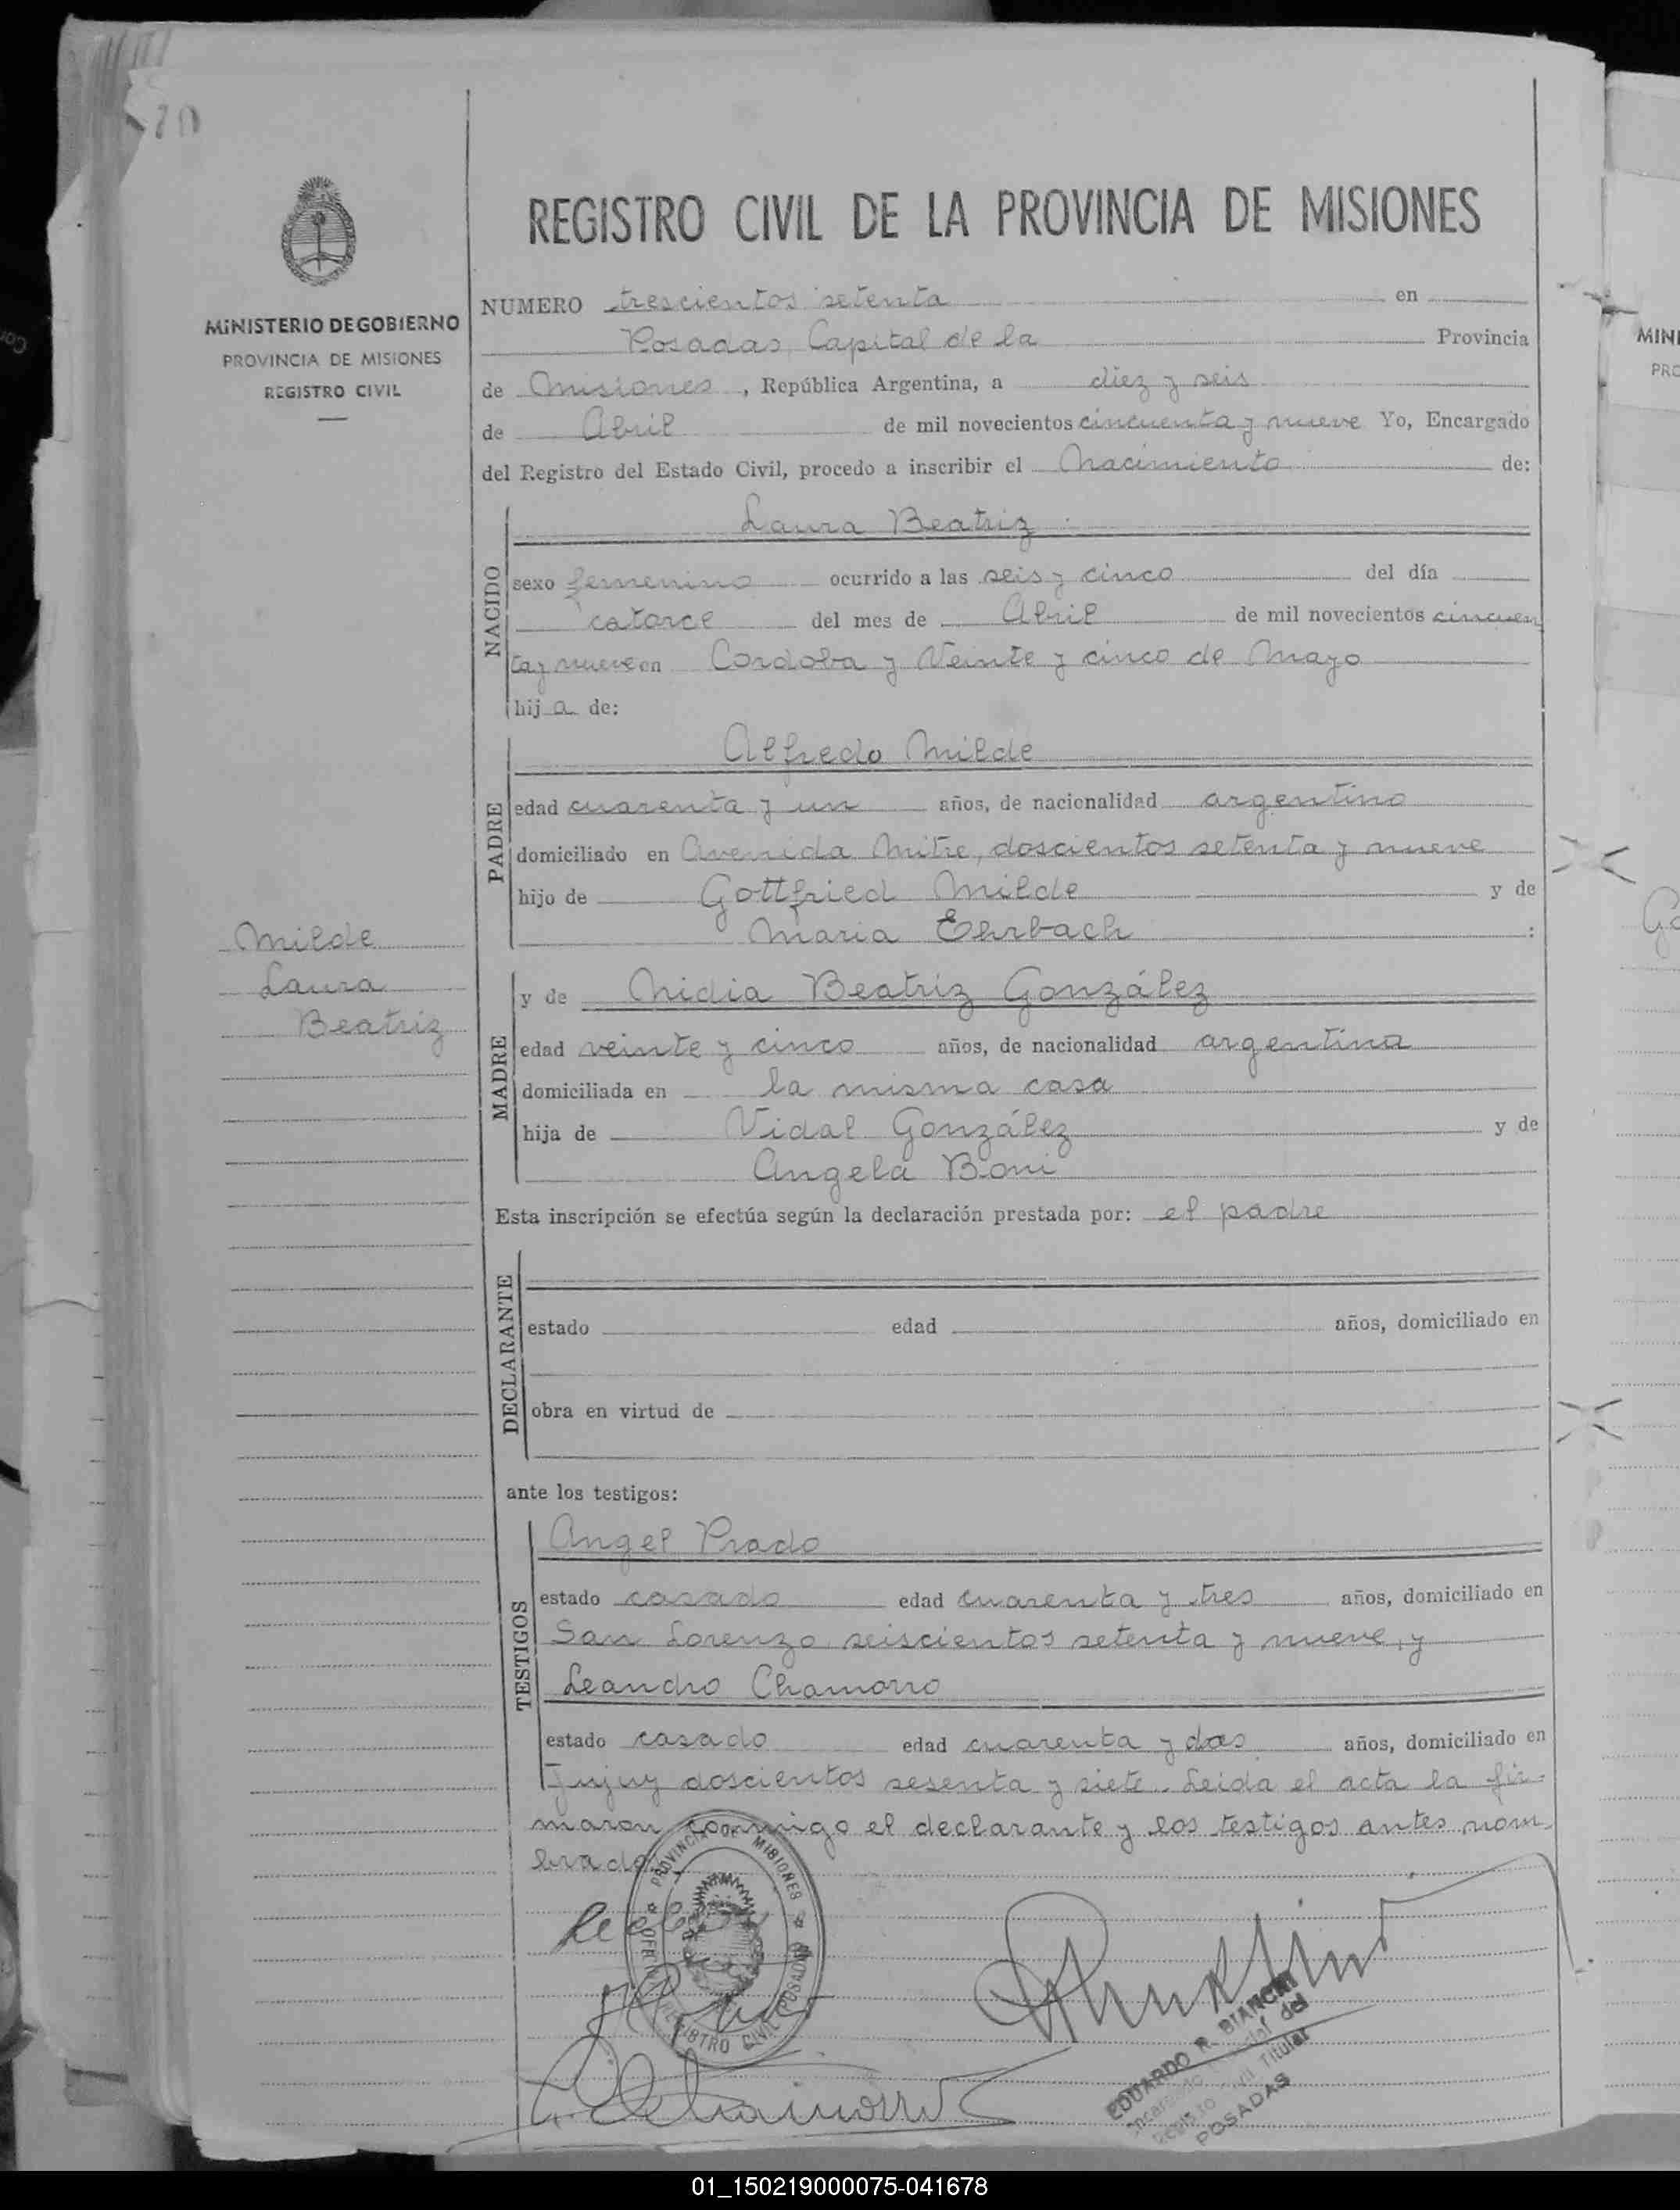 REGISTRO CIVIL DE LA PROVINCIA DE MISIONES
MINISTERIO DE GOBIERNO
PROVINCIA DE MISIONES
REGISTRO CIVIL
NUMERO trescientos setenta en
Posadas, Capital de la Provincia
de Misiones, República Argentina, a diez y seis
de Abril de mil novecientos cincuenta y nueve Yo, Encargado
del Registro del Estado Civil, procedo a inscribir el Nacimiento de:
NACIDO
Laura Beatriz
sexo femenino ocurrido a las seis y cinco del día
catorce del mes de Abril de mil novecientos cincuen
ta y nueve en Cordoba y Veinte y cinco de Mayo
hija de:
PADRE
Alfredo Milde
edad cuarenta y un años, de nacionalidad argentino
domiciliado en Avenida Mitre, doscientos setenta y nueve
hijo de Gottfried Milde y de
Maria Ehrbach :
Milde
Laura
Beatriz
MADRE
y de Nidia Beatriz González
edad veinte y cinco años, de nacionalidad argentina
domiciliada en la misma casa
hija de Vidal González y de
Angela Boni
Esta inscripción se efectúa según la declaración prestada por: el padre
DECLARANTE
estado edad años, domiciliado en
obra en virtud de
ante los testigos:
TESTIGOS
Angel Prado
estado casado edad cuarenta y tres años, domiciliado en
San Lorenzo seiscientos setenta y nueve, y
Leandro Chamorro
estado casado edad cuarenta y dos años, domiciliado en
Jujuy doscientos sesenta y siete. Leida el acta la fir-
maron conmigo el declarante y los testigos antes nom
brados
PROVINCIA DE MISIONES
REGISTRO CIVIL POSADAS
EDUARDO R. BIANCHI
del
Registro Civil Titular
POSADAS
01_150219000075-041678